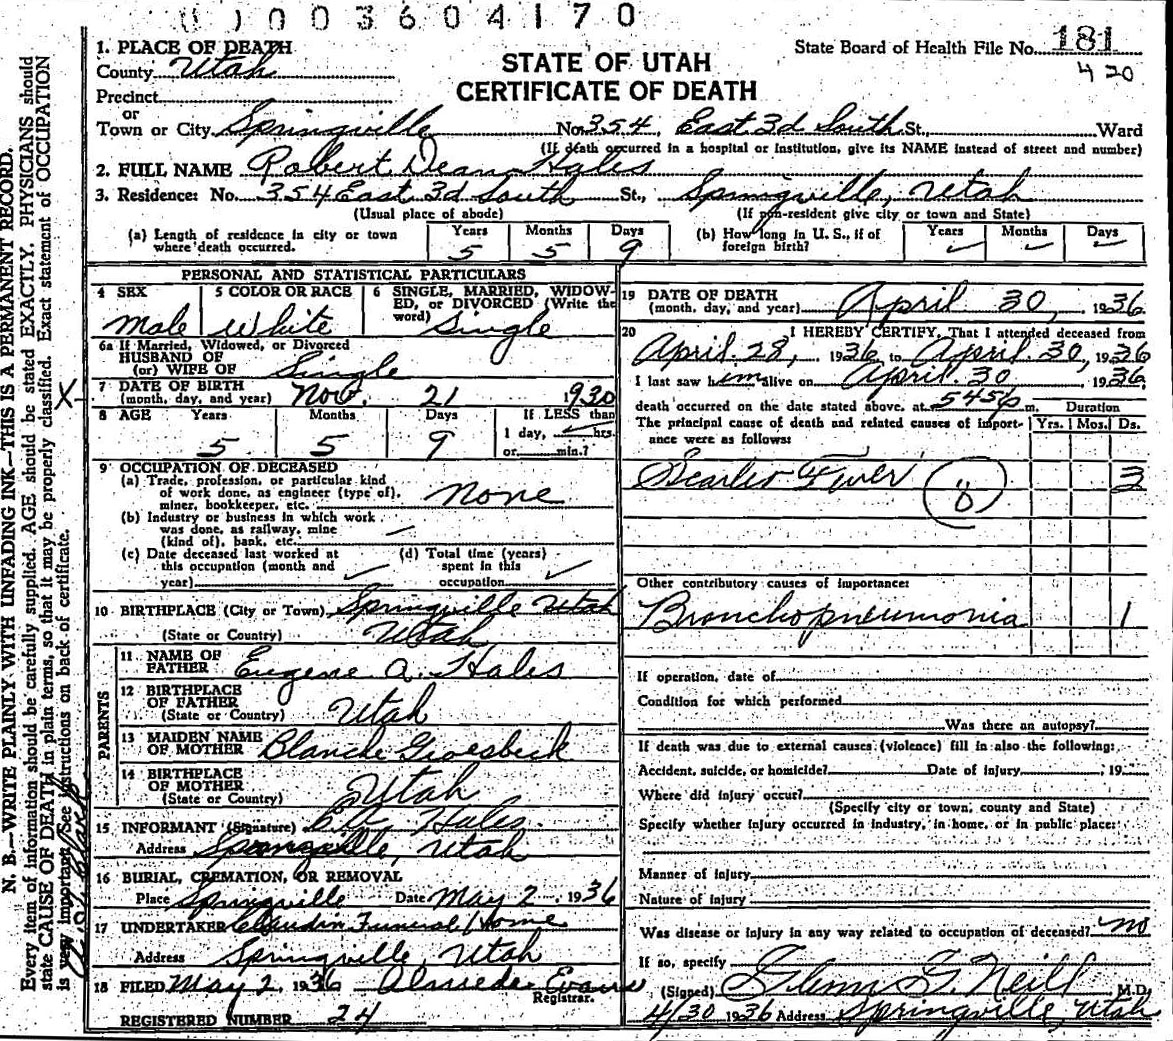 003604170
1. PLACE OF DEATH
County Utah
Precinct
or
Town or City Springville No. 354, East 3d South St., Ward
STATE OF UTAH
CERTIFICATE OF DEATH
State Board of Health File No. 181
420
(If death occurred in a hospital or institution, give its NAME instead of street and number)
2. FULL NAME Robert Dean Hales
3. Residence: No. 354 East 3d South St., Springville, Utah
(Usual place of abode) (If non-resident give city or town and State)
(a) Length of residence in city or town where death occurred. Years 5 Months 5 Days 9
(b) How long in U. S., if of foreign birth? Years ✓ Months ✓ Days ✓
PERSONAL AND STATISTICAL PARTICULARS
4 SEX Male
5 COLOR OR RACE White
6 SINGLE, MARRIED, WIDOWED, or DIVORCED (Write the word) Single
6a If Married, Widowed, or Divorced
HUSBAND OF
(or) WIFE OF Single
7 DATE OF BIRTH
(month, day, and year) Nov. 21 1930
8 AGE Years 5 Months 5 Days 9 If LESS than
1 day, hrs.
or min.?
9 OCCUPATION OF DECEASED
(a) Trade, profession, or particular kind
of work done, as engineer (type of),
miner, bookkeeper, etc. None
(b) Industry or business in which work
was done, as railway, mine
(kind of), bank, etc.
(c) Date deceased last worked at
this occupation (month and
year) ✓
(d) Total time (years)
spent in this
occupation ✓
10 BIRTHPLACE (City or Town) Springville Utah
(State or Country) Utah
PARENTS
11 NAME OF
FATHER Eugene A. Hales
12 BIRTHPLACE
OF FATHER
(State or Country) Utah
13 MAIDEN NAME
OF MOTHER Blanche Groesbeck
14 BIRTHPLACE
OF MOTHER
(State or Country) Utah
15 INFORMANT (Signature) Hales
Address Springville, Utah
16 BURIAL, CREMATION, OR REMOVAL
Place Springville Date May 2 1936
17 UNDERTAKER Claudin Funeral Home
Address Springville, Utah
18 FILED May 2, 1936 Almeda Evans
Registrar.
REGISTERED NUMBER 24
19 DATE OF DEATH
(month, day, and year) April 30, 1936
20 I HEREBY CERTIFY, That I attended deceased from
April 28, 1936 to April 30, 1936
I last saw him alive on April 30 1936
death occurred on the date stated above, at 545 p m. Duration
The principal cause of death and related causes of importance were as follows: Yrs. Mos. Ds.
Scarlet Fever 3
Other contributory causes of importance:
Bronchopneumonia 1
If operation, date of
Condition for which performed
Was there an autopsy?
If death was due to external causes (violence) fill in also the following:
Accident, suicide, or homicide? Date of injury , 19
Where did injury occur?
(Specify city or town, county and State)
Specify whether injury occurred in industry, in home, or in public place:
Manner of injury
Nature of injury
Was disease or injury in any way related to occupation of deceased? no
If so, specify
(Signed) Glenn G. Neill M.D.
4/30 1936 Address Springville, Utah
N. B.—WRITE PLAINLY WITH UNFADING INK—THIS IS A PERMANENT RECORD.
Every item of information should be carefully supplied. AGE should be stated EXACTLY. PHYSICIANS should
state CAUSE OF DEATH in plain terms, so that it may be properly classified. Exact statement of OCCUPATION
is very important. See instructions on back of certificate.
X